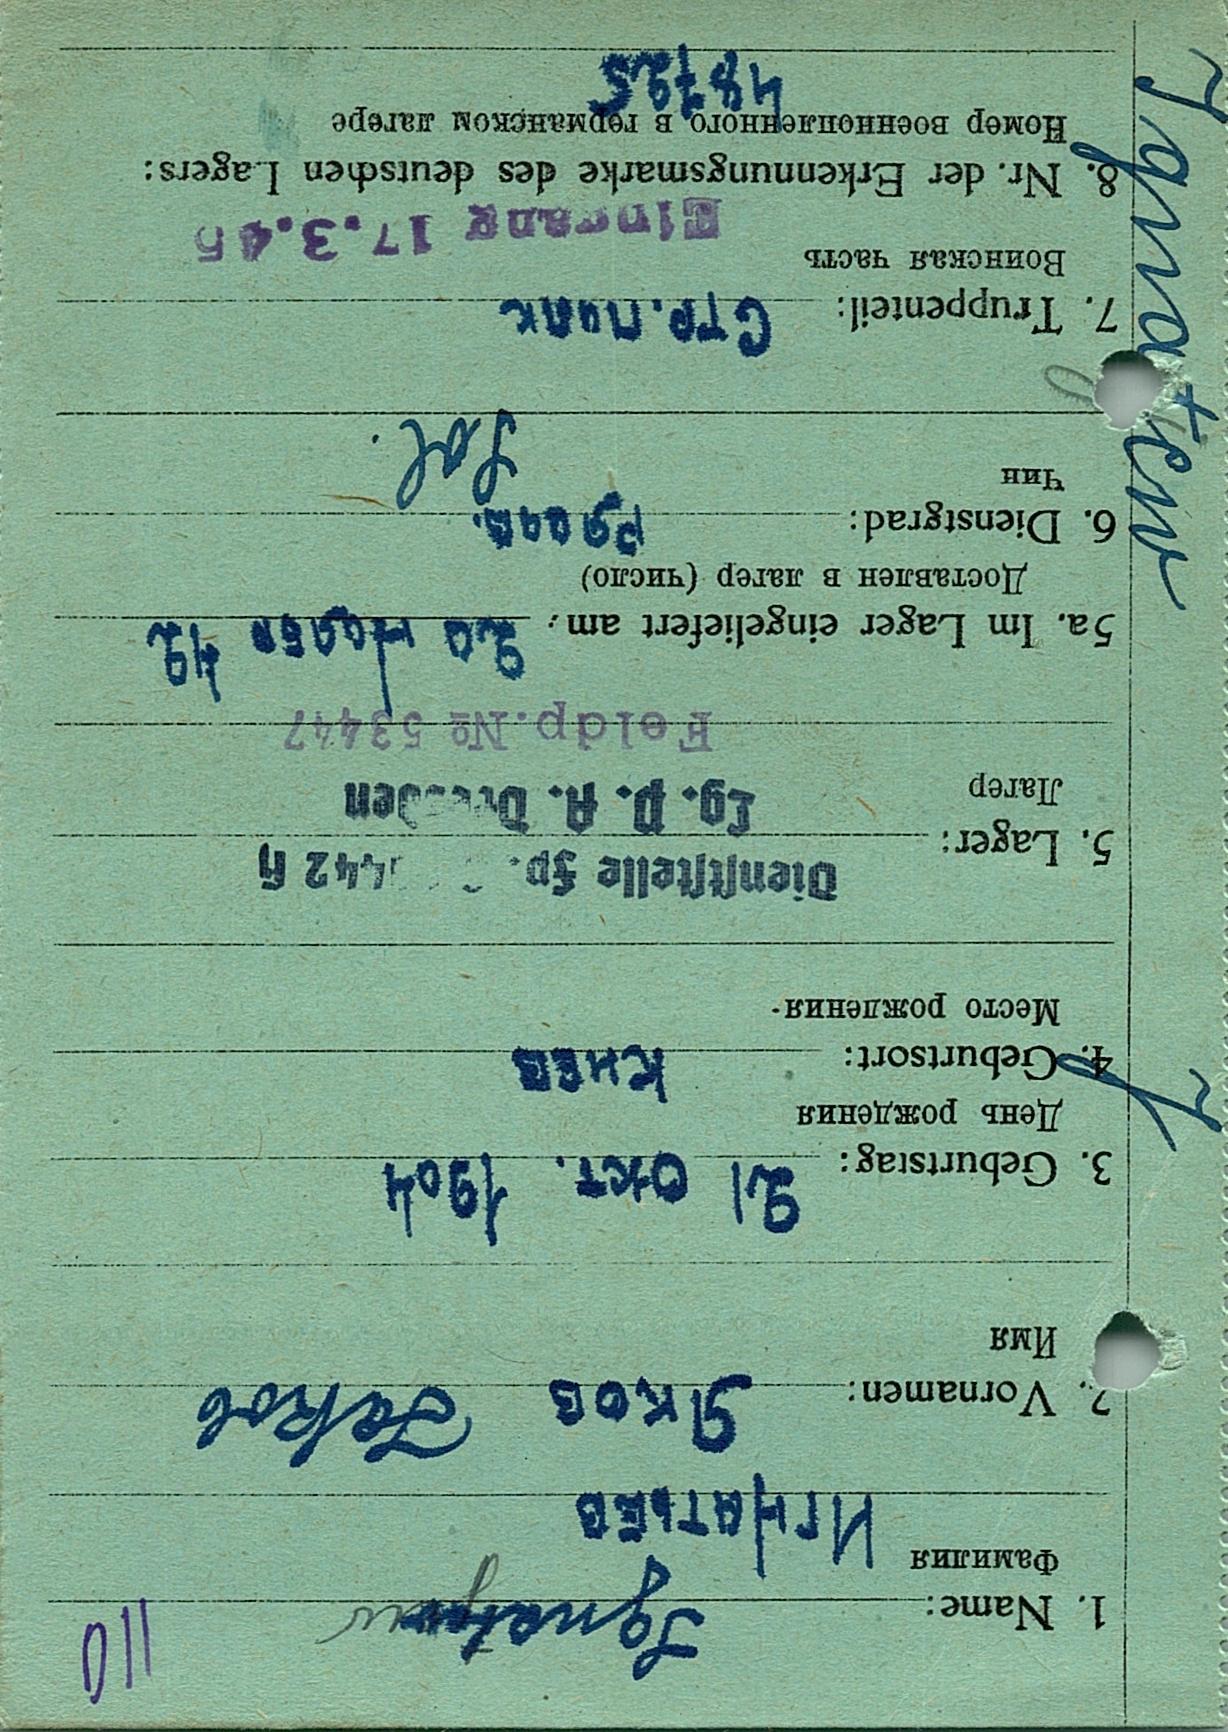 110
1. Name: Ignatjew
Фамилия Игнатьев
2. Vornamen: Яков Jakob
Имя
3. Geburtstag: 21 окт. 1904
День рождения
4. Geburtsort: Киев
Место рождения
Dienststelle Fp. 442 H
5. Lager: Lg. P. A. Dresden
Лагер
Feldp. № 53447
5a. Im Lager eingeliefert am: 20
Доставлен в лагер (число)
6. Dienstgrad: Рядов.
Чин Sol.
7. Truppenteil: Стр. полк
Воинская часть
Eingang 17.3.45
8. Nr. der Erkennungsmarke des deutschen Lagers:
Номер военнопленного в германском лагере
48725
J
Ignatew